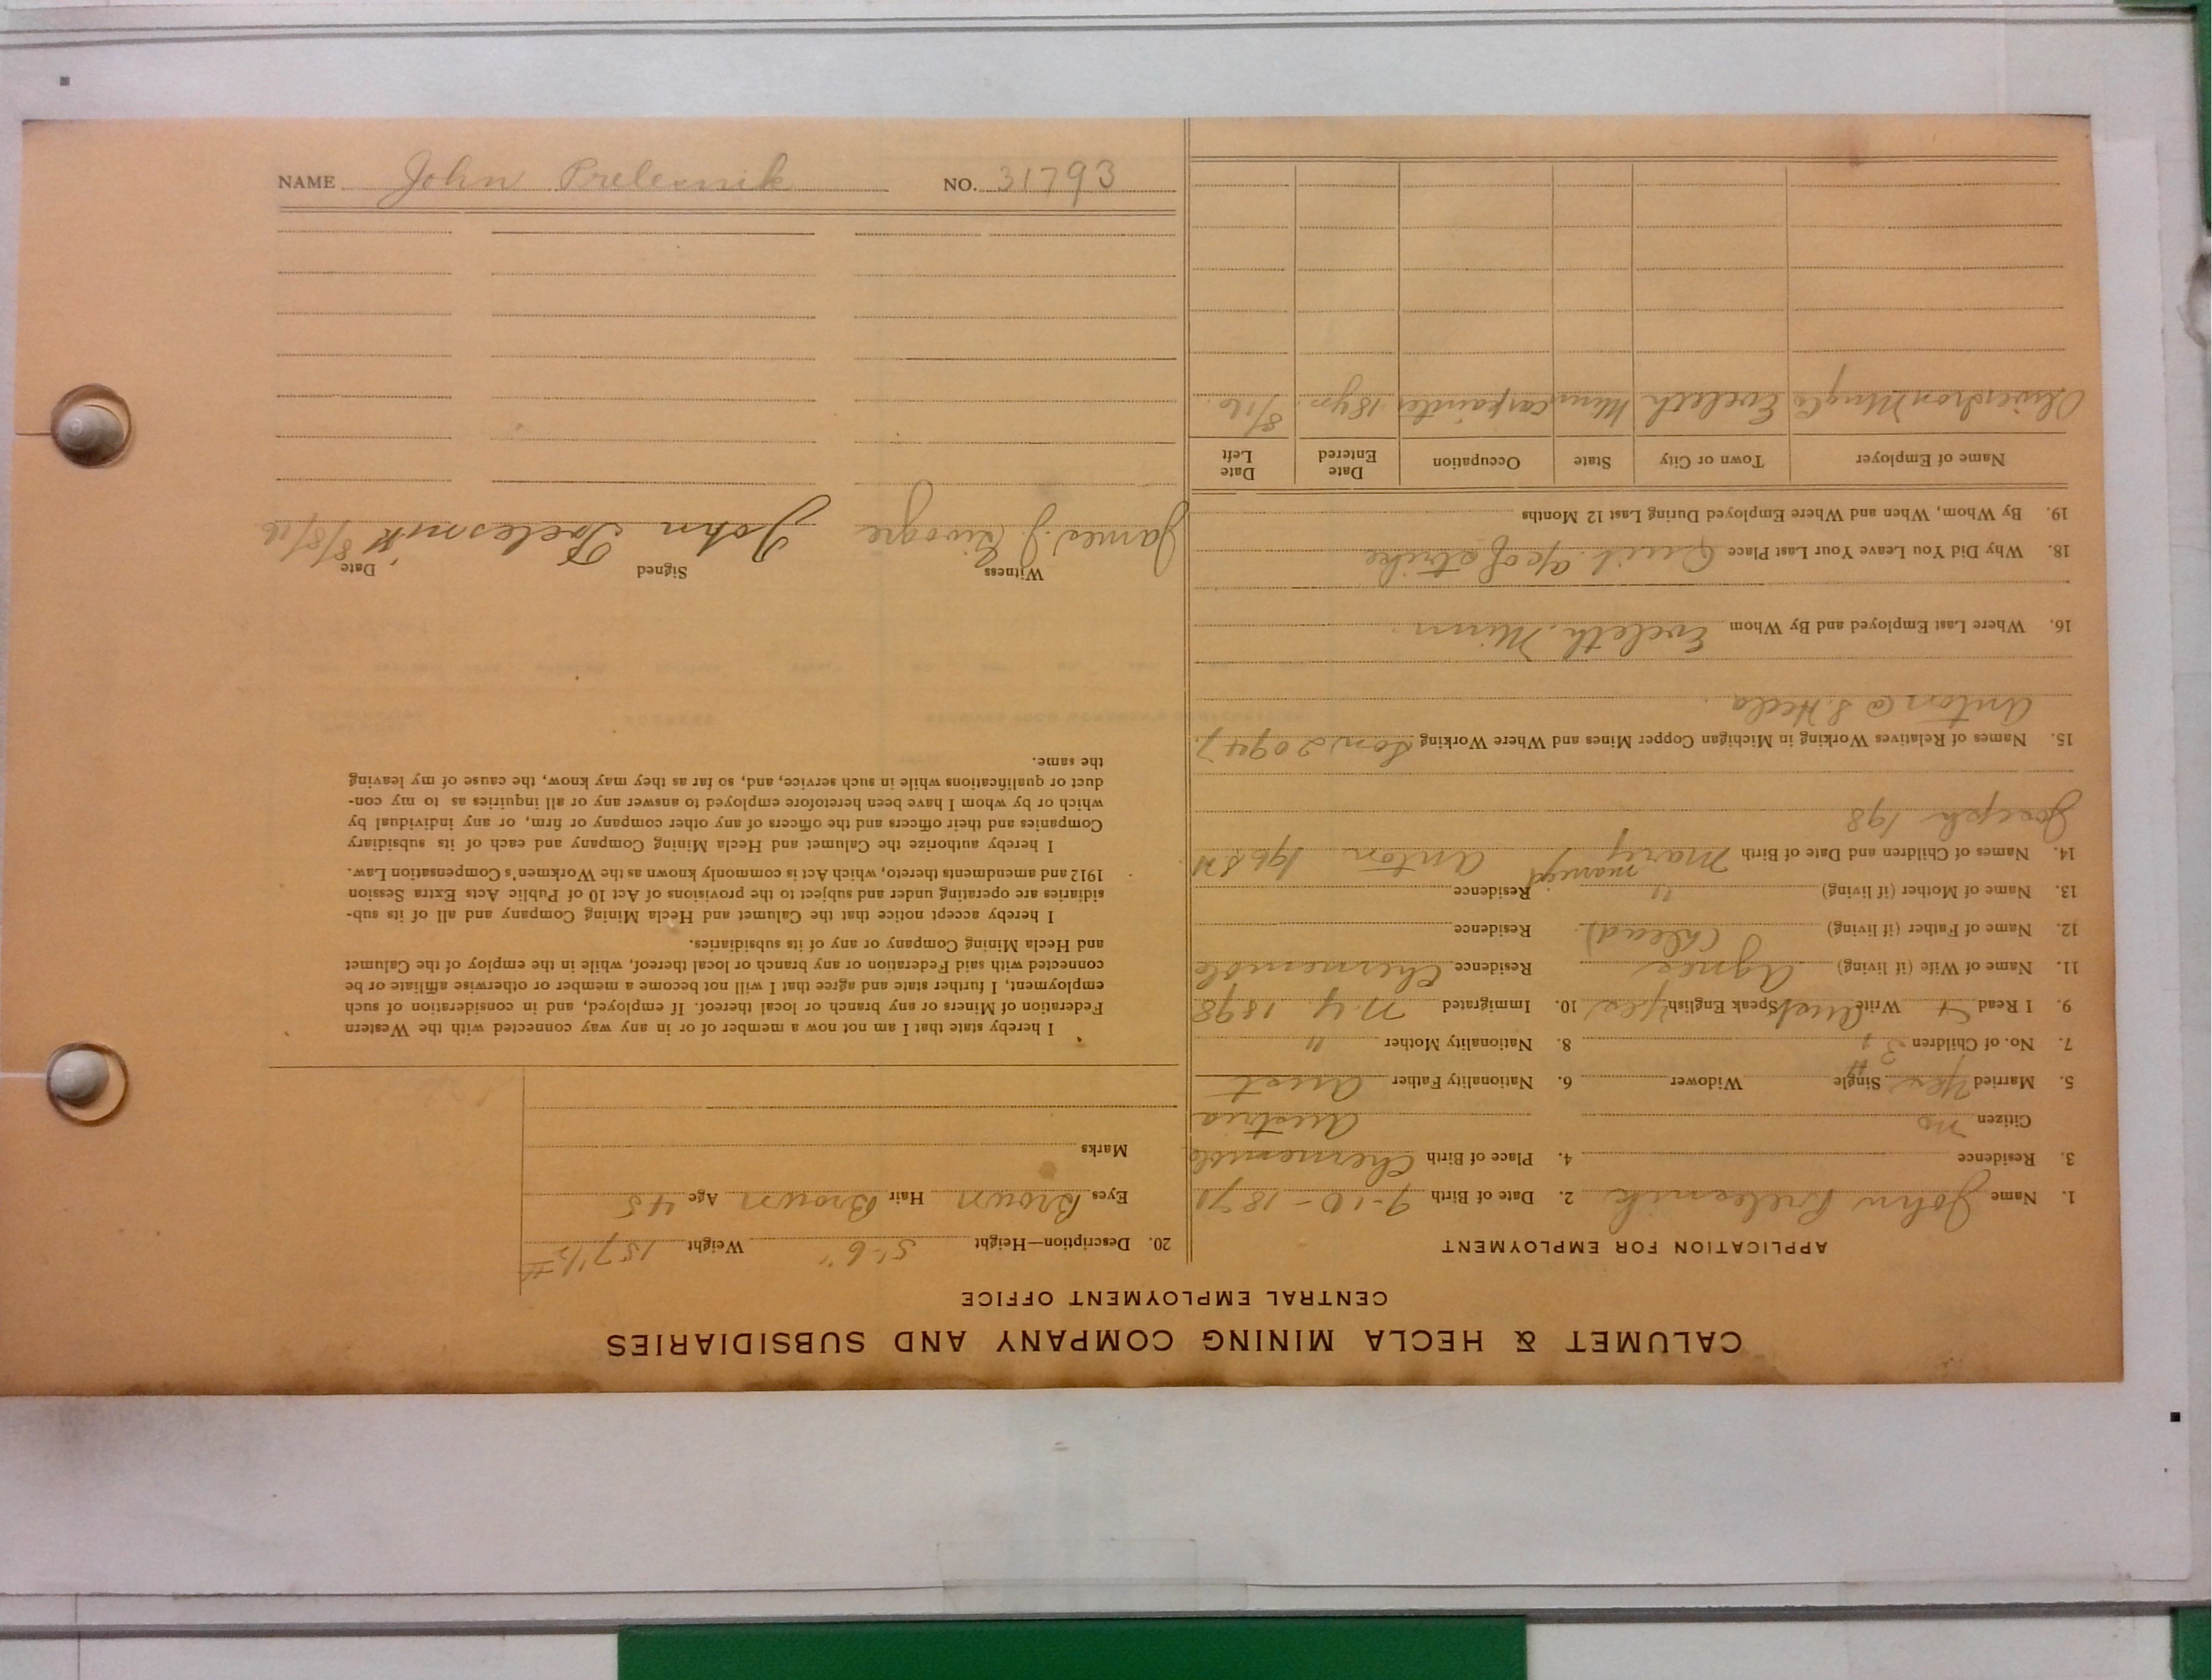 NAME John Prelesnik NO. 31793
CALUMET & HECLA MINING COMPANY AND SUBSIDIARIES
CENTRAL EMPLOYMENT OFFICE
APPLICATION FOR EMPLOYMENT
1. Name John Prelesnik 2. Date of Birth 9-10-1871
3. Residence 4. Place of Birth
Citizen no Austria
5. Married Yes Single Widower 6. Nationality Father Aust
7. No. of Children 3 8. Nationality Mother "
9. I Read + Write Aust Speak English Yes 10. Immigrated N.Y. 1898
11. Name of Wife (if living) Agnes Residence
12. Name of Father (if living) (dead) Residence
13. Name of Mother (if living) " Residence
14. Names of Children and Date of Birth Mary married Anton
Joseph 198
15. Names of Relatives Working in Michigan Copper Mines and Where Working Son
Anton @ S. Hecla
16. Where Last Employed and By Whom Eveleth Minn
18. Why Did You Leave Your Last Place Quit a/c of strike
19. By Whom, When and Where Employed During Last 12 Months
Name of Employer Town or City State Occupation Date Entered Date Left
Oliver Iron Mng Co Eveleth Minn Car painter 18 yrs. 8/16.
20. Description—Height 5'-6" Weight 157 1/2 #
Eyes Brown Hair Brown Age 45
Marks
I hereby state that I am not now a member of or in any way connected with the Western
Federation of Miners or any branch or local thereof. If employed, and in consideration of such
employment, I further state and agree that I will not become a member or otherwise affiliate or be
connected with said Federation or any branch or local thereof, while in the employ of the Calumet
and Hecla Mining Company or any of its subsidiaries.
I hereby accept notice that the Calumet and Hecla Mining Company and all of its sub-
sidiaries are operating under and subject to the provisions of Act 10 of Public Acts Extra Session
1912 and amendments thereto, which Act is commonly known as the Workmen's Compensation Law.
I hereby authorize the Calumet and Hecla Mining Company and each of its subsidiary
Companies and their officers and the officers of any other company or firm, or any individual by
which or by whom I have been heretofore employed to answer any or all inquiries as to my con-
duct or qualifications while in such service, and, so far as they may know, the cause of my leaving
the same.
Witness Signed Date
James J. John Prelesnik 8/8/16